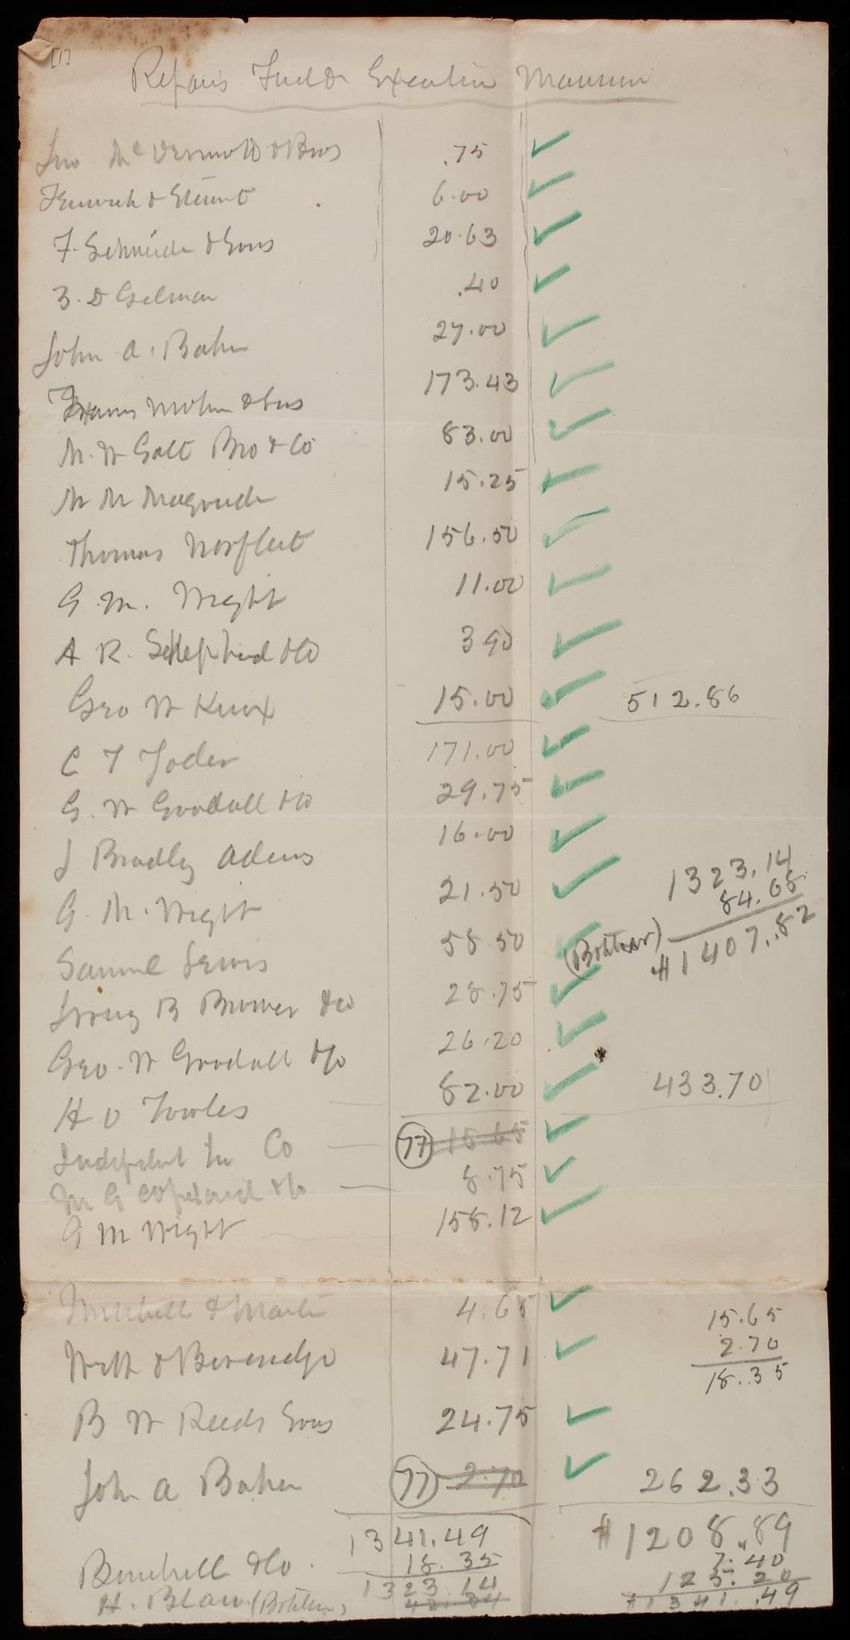 Repairs Fuel &c Executive Mansion
Jno McDermott & Bros .75 ✓
6.00 ✓
F. Schneider & Sons 20.63 ✓
Z. D Gilman .40 ✓
John A. Baker 27.00 ✓
Francis Mohun & Sons 173.43 ✓
M. W Galt Bro & Co 83.00 ✓
15.25 ✓
Thomas Norfleet 156.50 ✓
G. M. Wight 11.00 ✓
A R. Shepherd & Co 3 90 ✓
Geo W Knox 15.00 ✓ 512.86
C T Yoder 171.00 ✓
G. W Goodall & Co 29.75 ✓
J Bradley Adams 16.00 ✓
1323.14
84.68
G. M. Wight 21.50 ✓
$1407.82
Samuel Lewis 58 50 ✓
28.75 ✓
Geo. W Goodall & Co 26.20 ✓
H O Towles 82.00 ✓ 433.70
Co (77) 15 65 ✓
M G Copeland & Co 8.75 ✓
G M Wight 158.12 ✓
Mitchell & Martin 4.65 ✓
15.65
2.70
18.35
Webb & Beveridge 47.71 ✓
B W Reeds Sons 24.75 ✓
John A Baker (77) 2.70 ✓ 262.33
1341.49 $1208.89
18.35 7.40
1323.14 125.20
$1341.49
& Co.
H.